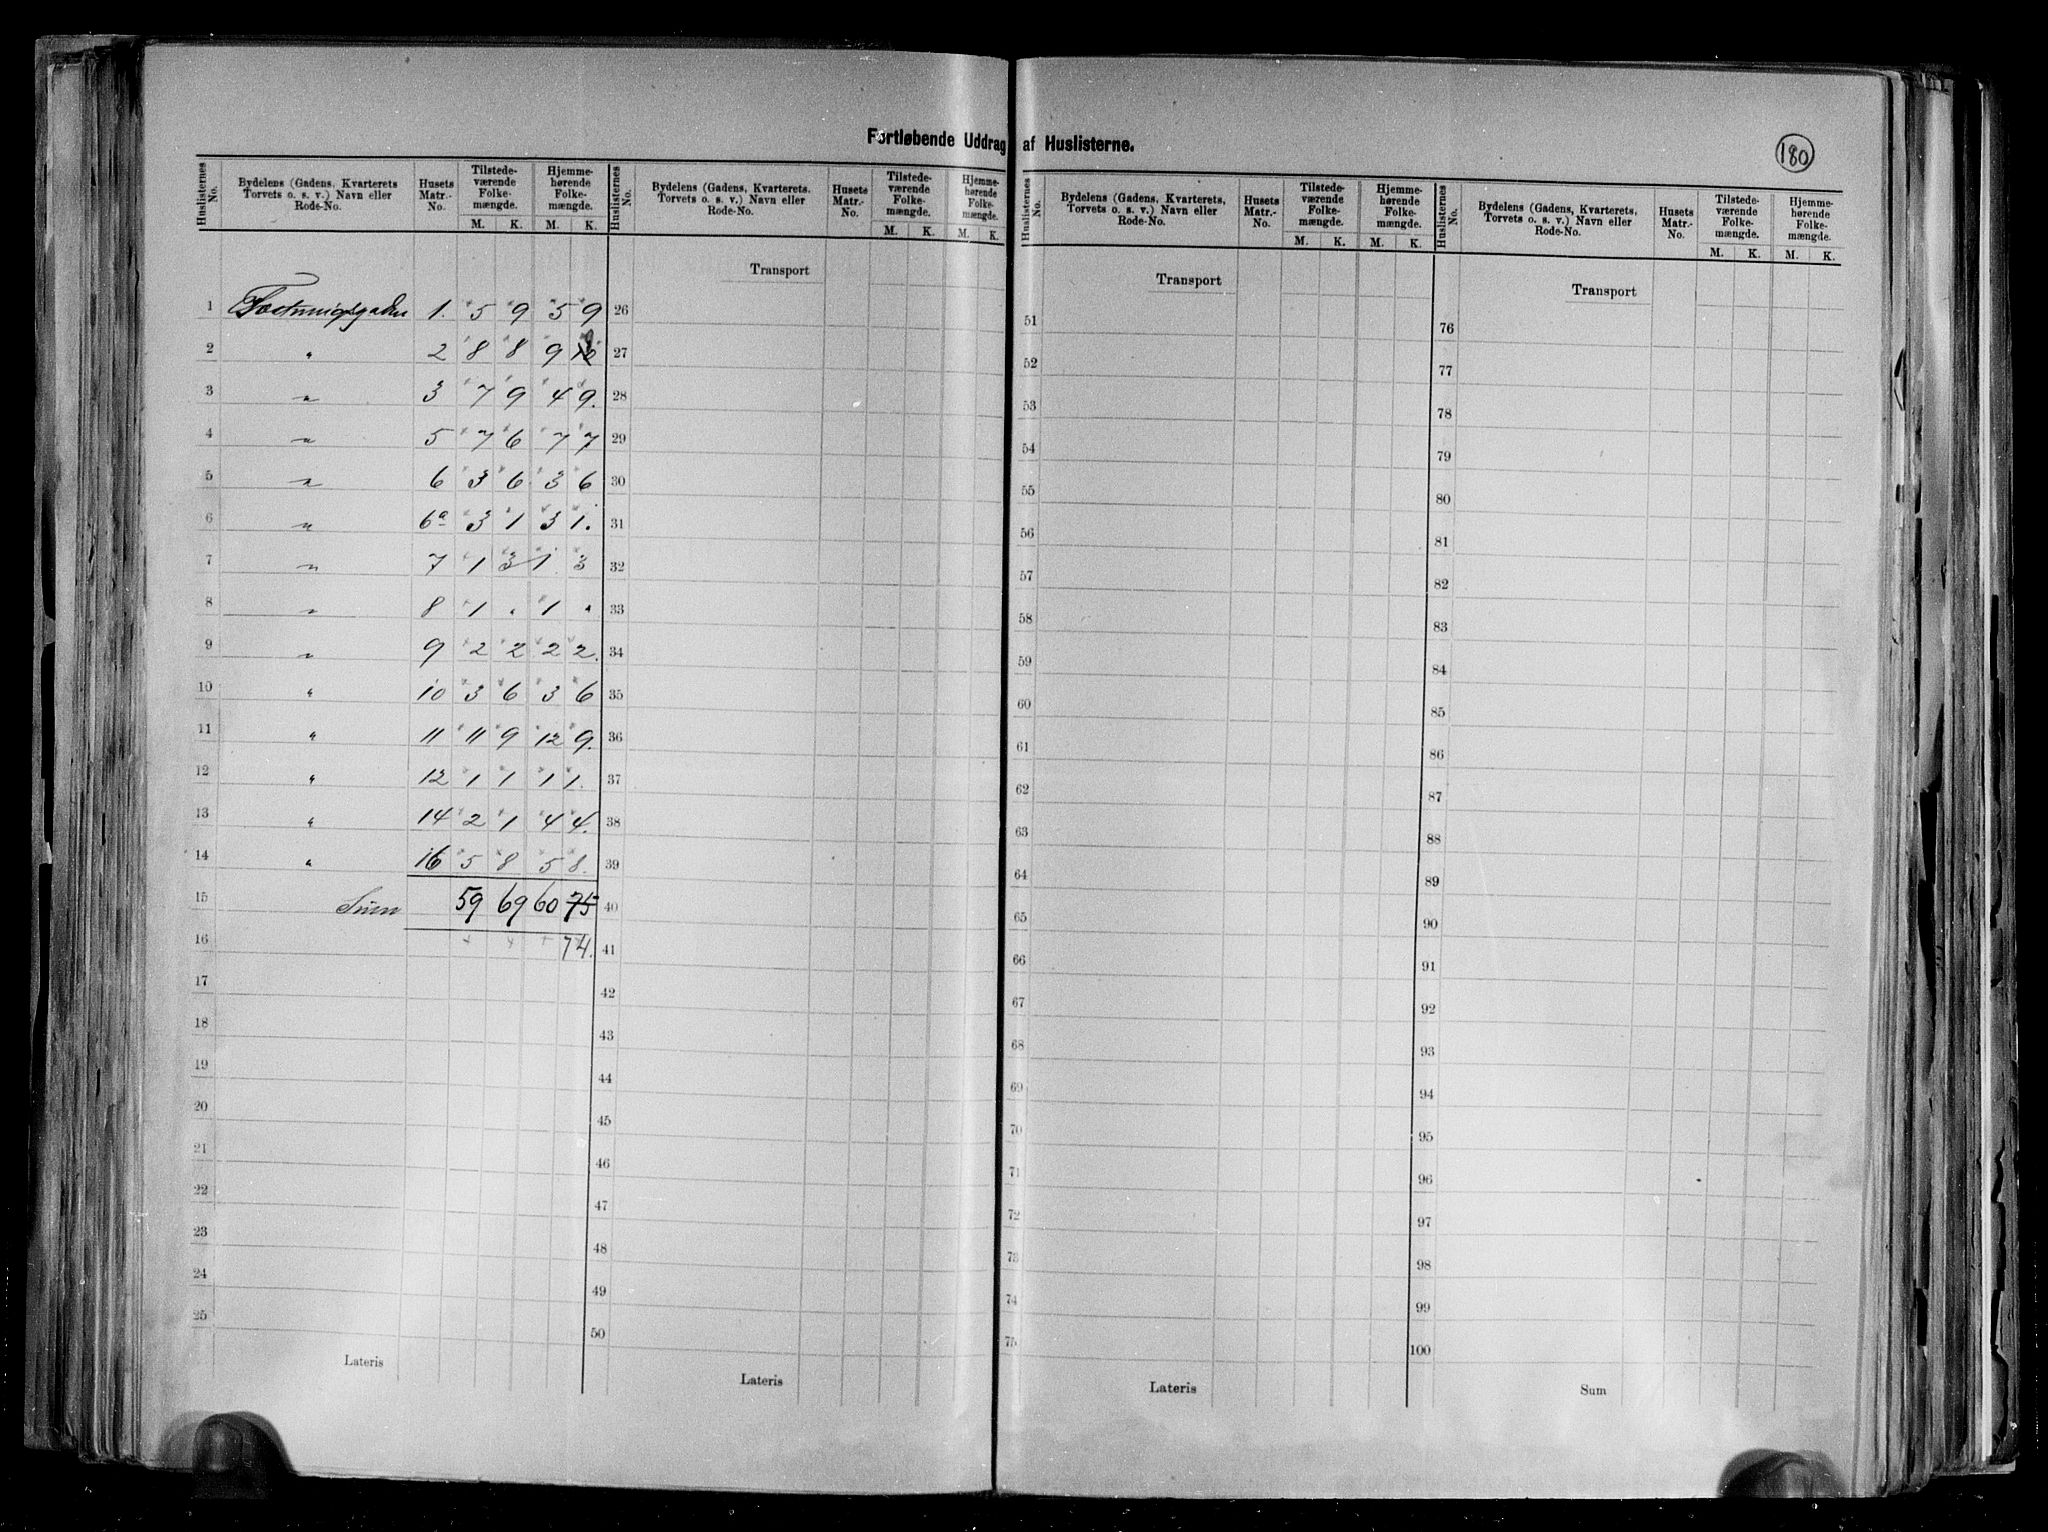 Fortløbende Uddrag af Huslisterne.
180
Huslisternes No. Bydelens (Gadens, Kvarterets Torvets o. s. v.) Navn eller Rode-No. Husets Matr.-No. Tilstedeværende Folkemængde. M. K. Hjemmehørende Folkemængde. M. K.
1 Fæstningsgaden 1. 5 9 5 9
2 " 2 8 8 9 9
3 " 3 7 9 4 9.
4 " 5 7 6 7 7
5 " 6 3 6 3 6
6 " 6a 3 1 3 1.
7 " 7 1 3 1 3
8 " 8 1 . 1 .
9 " 9 2 2 2 2.
10 " 10 3 6 3 6
11 " 11 11 9 12 9.
12 " 12 1 1 1 1.
13 " 14 2 1 4 4.
14 " 16 5 8 5 8.
15 Sum 59 69 60 75
16 74.
17
18
19
20
21
22
23
24
25
Lateris
Huslisternes No. Bydelens (Gadens, Kvarterets. Torvets o. s. v.) Navn eller Rode-No. Husets Matr.-No. Tilstedeværende Folkemængde. M. K. Hjemmehørende Folkemængde. M. K.
Transport
26
27
28
29
30
31
32
33
34
35
36
37
38
39
40
41
42
43
44
45
46
47
48
49
50
Lateris
Huslisternes No. Bydelens (Gadens, Kvarterets, Torvets o. s. v.) Navn eller Rode-No. Husets Matr.-No. Tilstedeværende Folkemængde. M. K. Hjemmehørende Folkemængde. M. K.
Transport
51
52
53
54
55
56
57
58
59
60
61
62
63
64
65
66
67
68
69
70
71
72
73
74
75
Lateris
Huslisternes No. Bydelens (Gadens, Kvarterets, Torvets o. s. v.) Navn eller Rode-No. Husets Matr.-No. Tilstedeværende Folkemængde. M. K. Hjemmehørende Folkemængde. M. K.
Transport
76
77
78
79
80
81
82
83
84
85
86
87
88
89
90
91
92
93
94
95
96
97
98
99
100
Sum